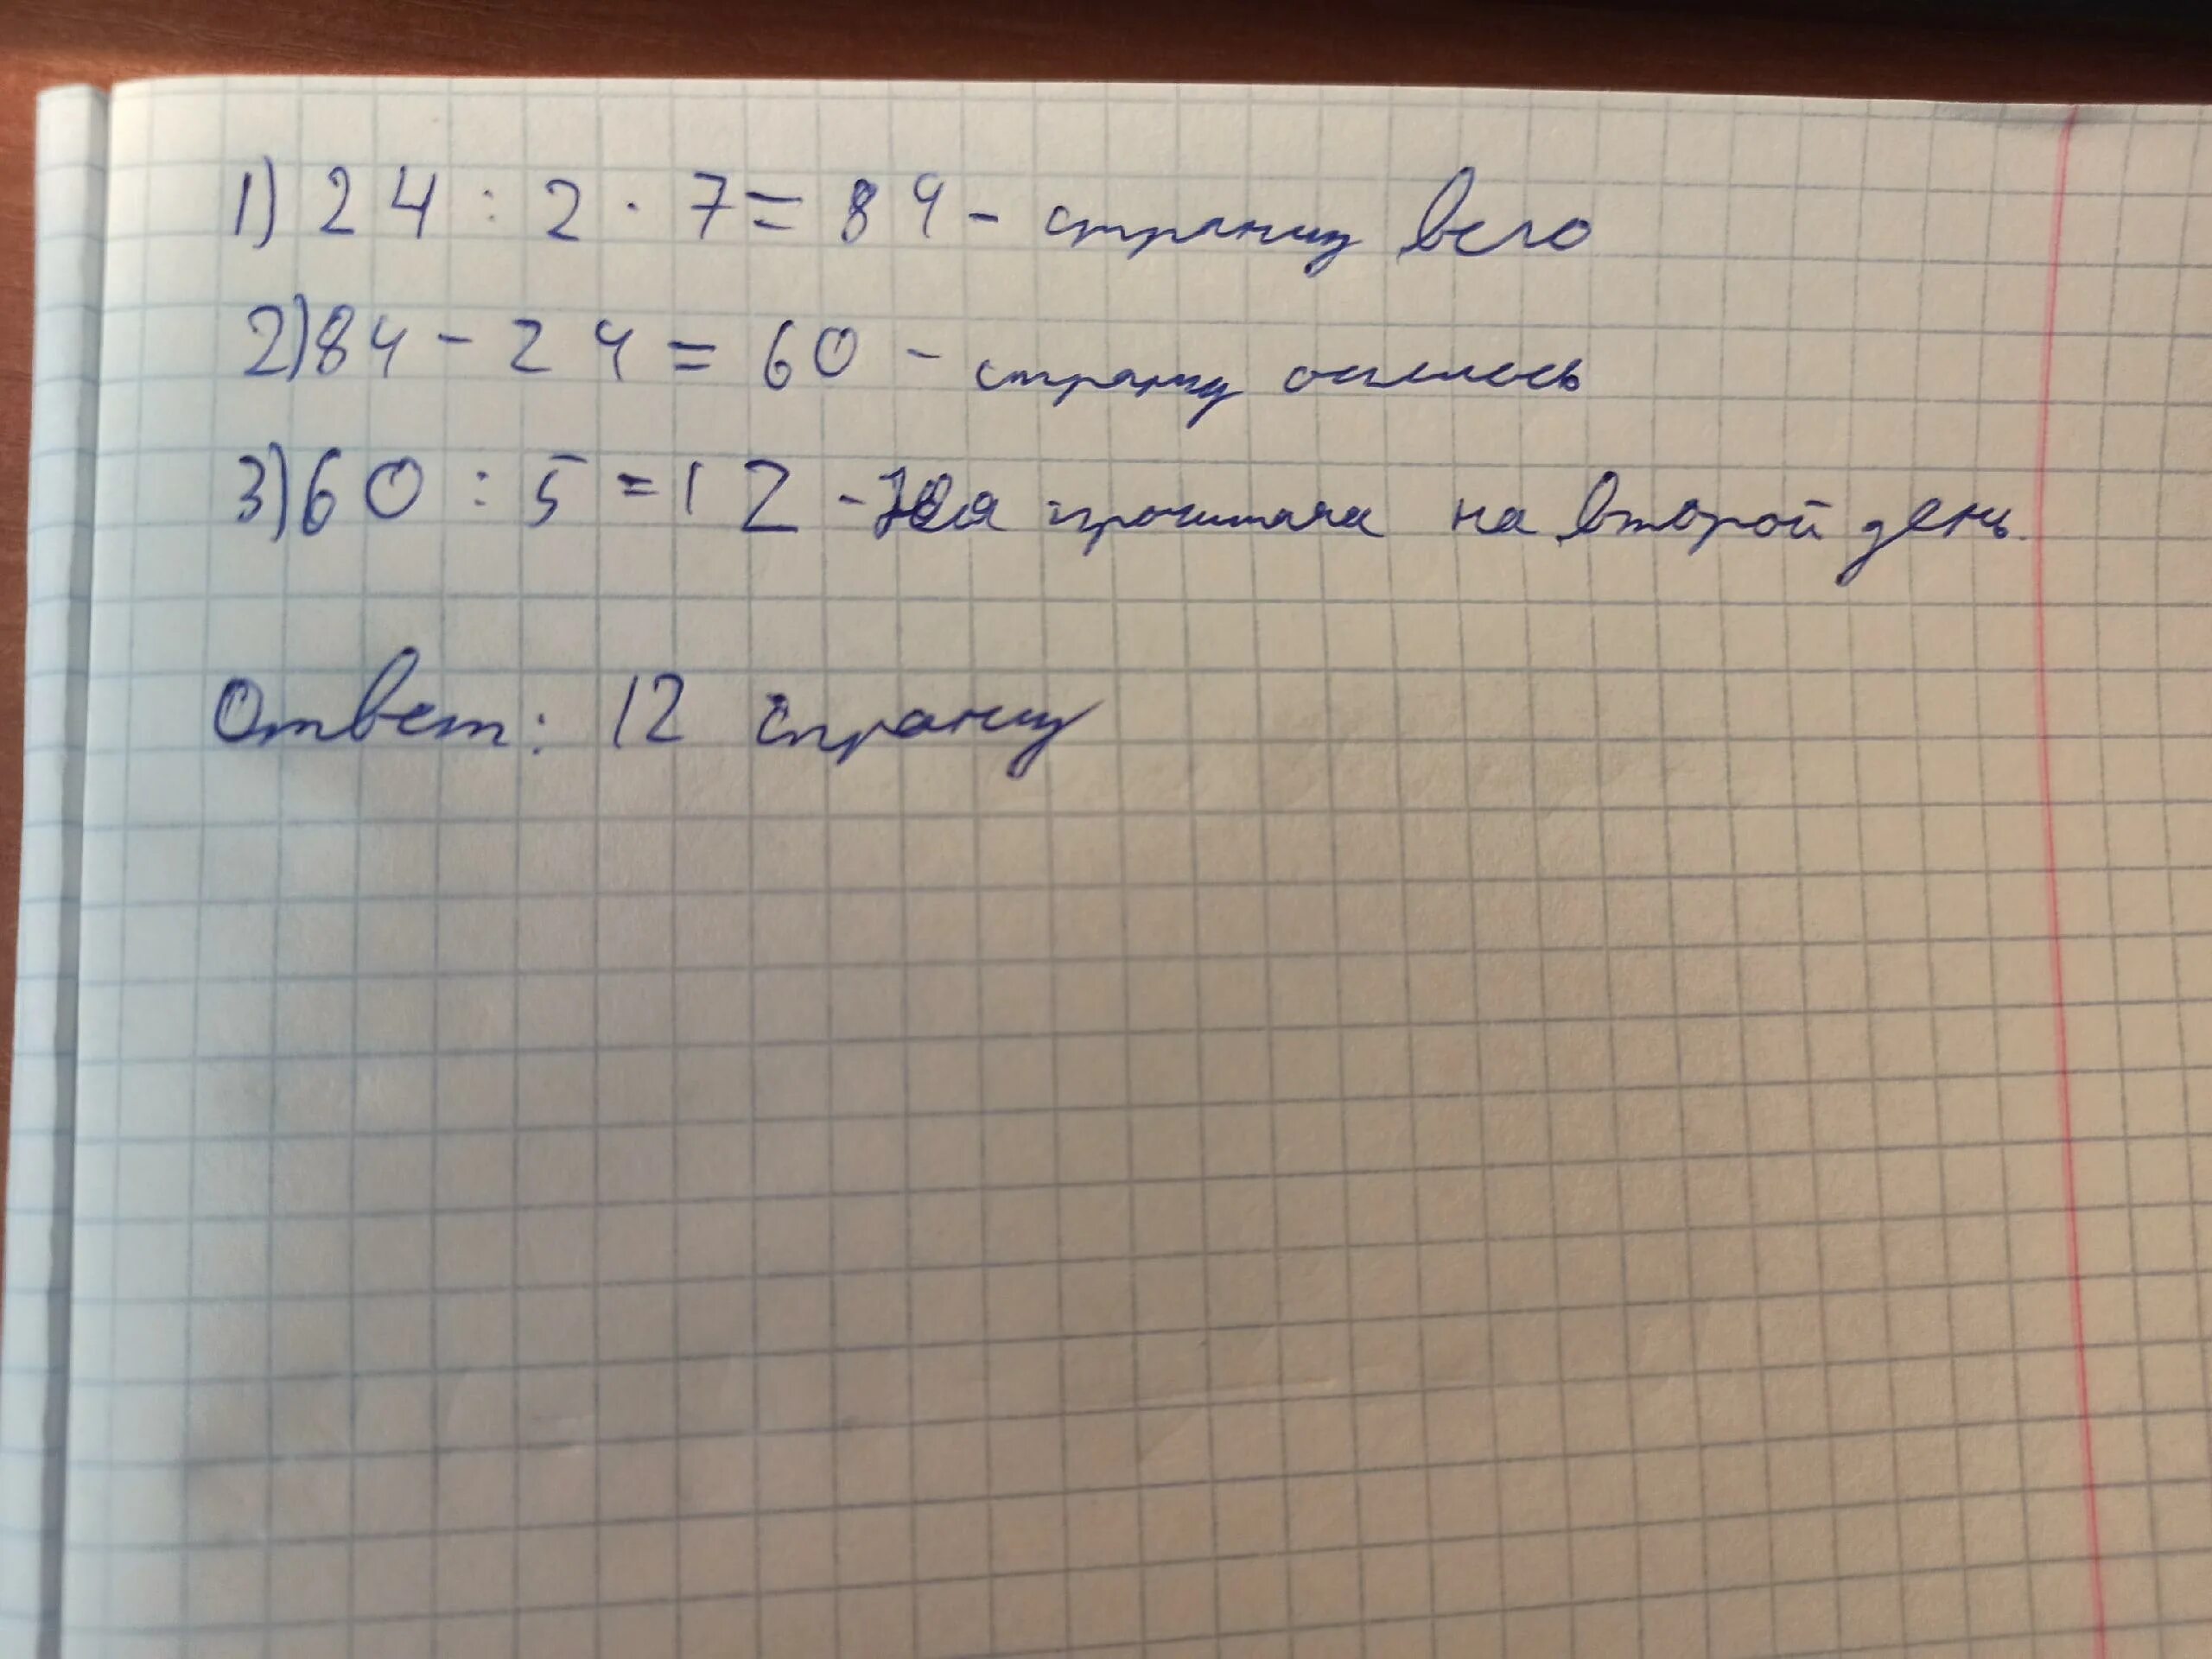 1) 24 : 2 · 7 = 84 - страниц всего
2) 84 - 24 = 60 - страниц осталось
3) 60 : 5 = 12 - Юля прочитала на второй день.
Ответ: 12 страниц